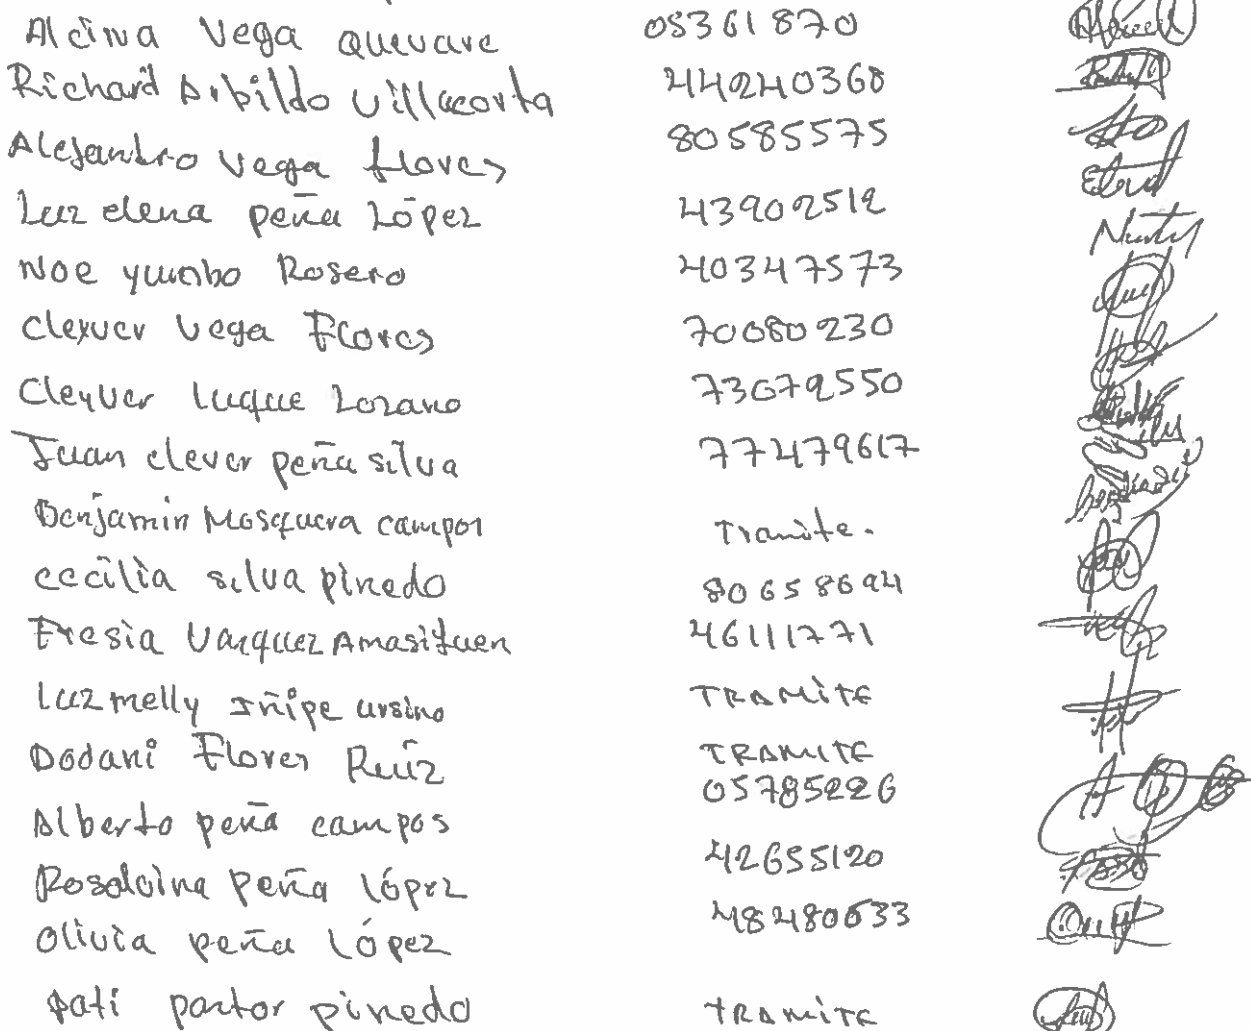 Alcina Vega Quevare 05361870
Richard Arbildo Villacorta 44240368
Alejandro Vega Flores 80585575
Luz elena peña López 43902512
Noe yumbo Rosero 40347573
Clexver Vega Flores 70080230
Cleyver Luque Lozano 73079550
Juan clever peña silva 77479617
Benjamin Mosquera campos Tramite.
cecilia silva pinedo 80658694
Fresia Vasquez Amasifuen 46111771
Luz melly Iñipe ursino TRAMITE
Dodani Flores Ruiz TRAMITE
Alberto peña campos 05785226
Rosaloina Peña López 42655120
Olivia peña López 48480633
pati pastor pinedo TRAMITE